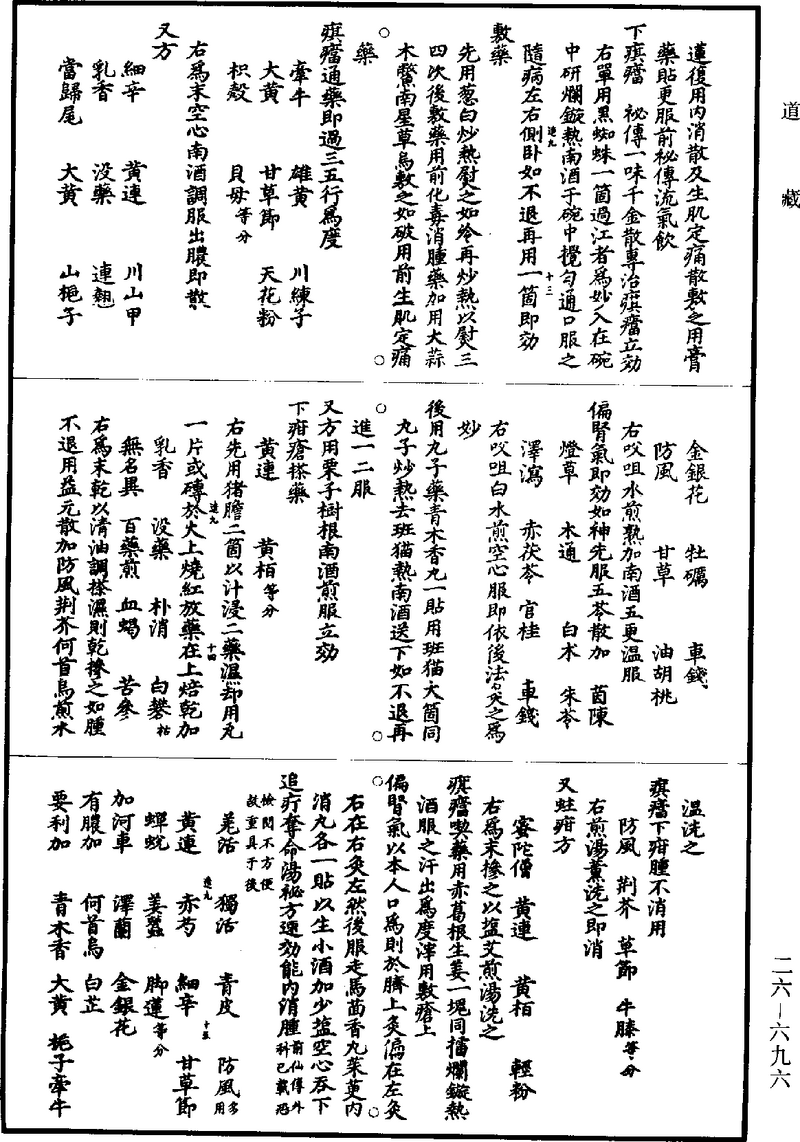 道藏
蓮復用内消散及生肌定痛散敷之用膏
藥貼更服前秘傳流氣飲
下㾵㿉 祕傳一味千金散專治㾵㿉立効
右單用黑蜘蛛一箇過江者為妙入在碗
中研爛鏇熱南酒于碗中攪勻通口服之
隨病左右側卧如不退再用一箇即効
敷藥
先用葱白炒熱熨之如冷再炒熱以熨三
四次後敷藥用前化毒消腫藥加用大蒜
木鱉南星草烏敷之如破用前生肌定痛
藥
㾵㿉通藥即過三五行為度
牽牛 雄黄 川練子
大黄 甘草節 天花粉
枳殼 貝母等分
右為末空心南酒調服出膿即散
又方
細辛 黄連 川山甲
乳香 没藥 連翹
當歸尾 大黄 山梔子
金銀花 牡礪 車錢
防風 甘草 油胡桃
右㕮咀水煎熟加南酒五更温服
偏腎氣即効如神先服五苓散加 茵陳
燈草 木通 白术 朱苓
澤瀉 赤茯苓 官桂 車錢
右㕮咀白水煎空心服即依後法灸之為
妙
後用九子藥青木香丸一貼用班猫大箇同
九子炒熱去班猫熱南酒送下如不退再
進一二服
又方用栗子樹根南酒煎服立効
下疳瘡搽藥
黄連 黄栢等分
右先用猪膽二箇以汁浸二藥濕却用瓦
一片或磚於火上燒紅放藥在上焙乾加
乳香 没藥 朴消 白礬枯
無名異 百藥煎 血蝎 苦參
右為末乾以清油調搽濕則乾摻之如腫
不退用益元散加防風荆芥何首烏煎水
温洗之
㾵㿉下疳腫不消用
防風 荆芥 草節 牛膝等分
右煎湯薰洗之即消
又蛀疳方
密陀僧 黄連 黄栢 輕粉
右為末摻之以塩艾煎湯洗之
㾵㿉喫藥用赤葛根生姜一塊同擂爛鏇熱
酒服之汗出為度滓用敷瘡上
偏腎氣以本人口為則於臍上灸偏在左灸
右在右灸左然後服走馬茴香丸茱萸内
消丸各一貼以生小酒加少塩空心吞下
追疔奪命湯祕方速効能内消腫前仙傳外科已載恐檢閲不方便故重具于後
羌活 獨活 青皮 防風多用
黄連 赤芍 細辛 甘草節
蟬蛻 姜蠶 脚蓮等分
加河車 澤蘭 金銀花
有膿加 何首烏 白芷
要利加 青木香 大黄 梔子牽牛
二六—六九六